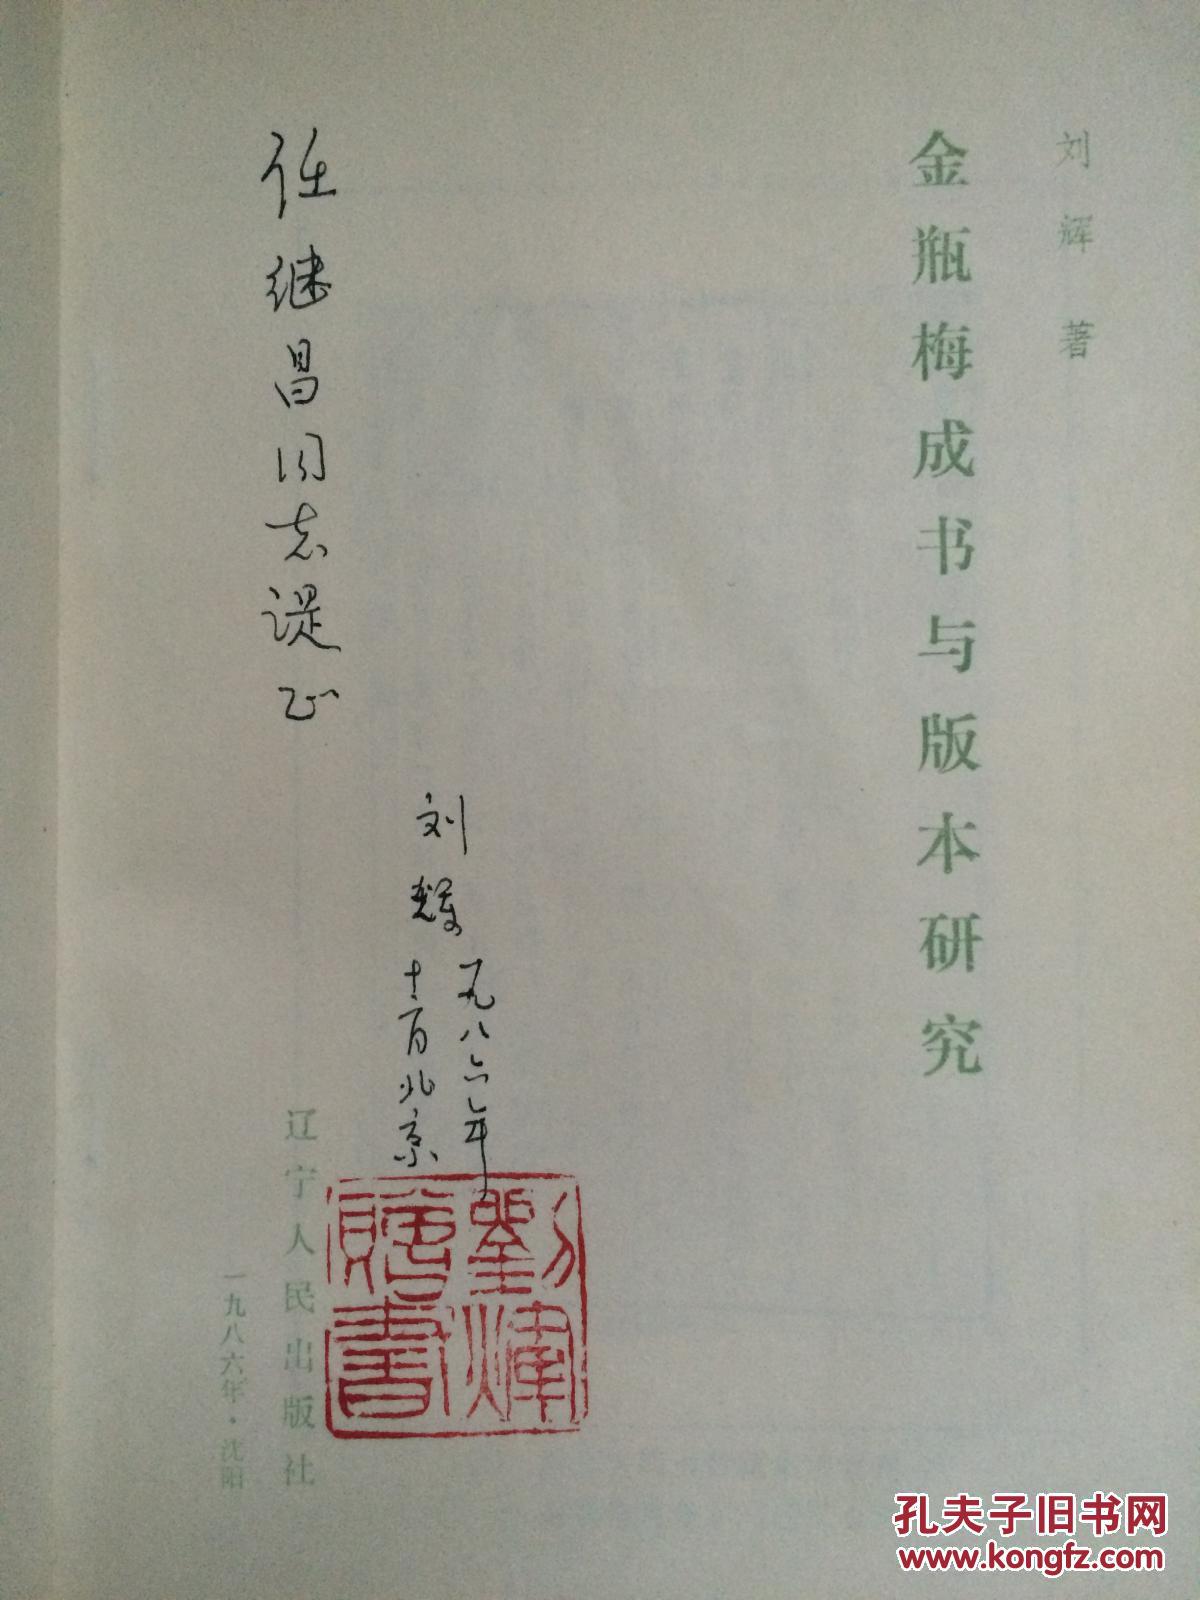 刘辉 著
金瓶梅成书与版本研究
任继昌同志𬤊正
刘辉
一九八六年
十二月北京
劉煇
贈書
辽宁人民出版社
一九八六年·沈阳
孔夫子旧书网
www.kongfz.com